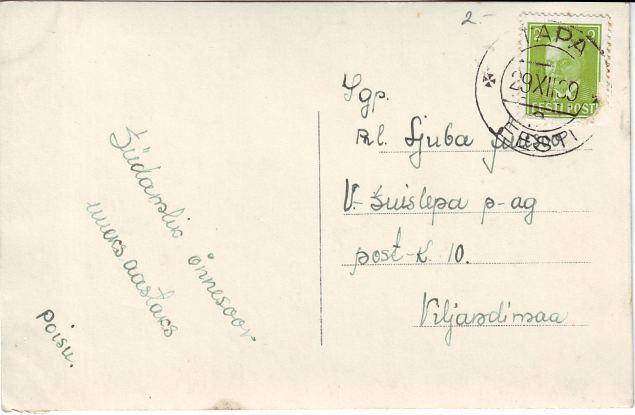 2.-
TAPA
2 2
29 XII 39
EESTI POST
EESTI
Lgp.
Prl. Ljuba
V-Suislepa p-ag
post-k. 10.
Viljandimaa
Südamlik õnnesoov
uueks aastaks
Poisu.